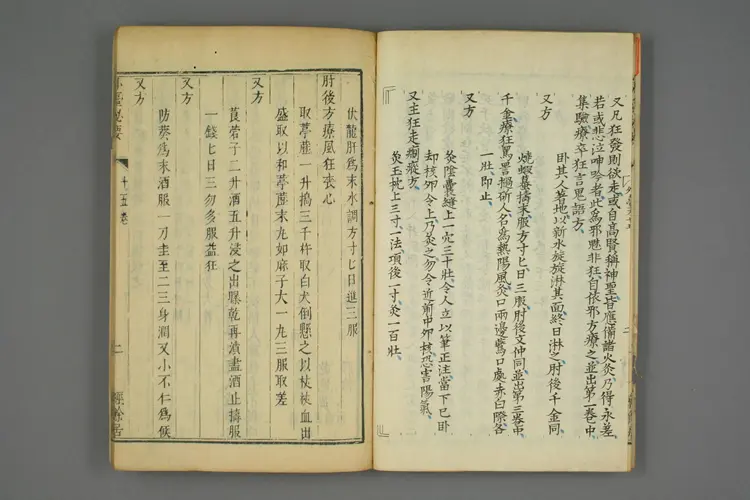 又凡狂發則欲走或自高賢稱神聖皆應備諸火灸乃得永差
若或悲泣呻吟者此為邪魅非狂自依邪方療之並出第一卷中
集驗療卒狂言鬼語方
又方
卧其人著地以新水淀淀淋其面終日淋之肘後千金同
燒蝦蟇擣末服方寸匕日三服肘後文仲同並出第三卷中
又方
千金療狂罵詈撾斫人名為熱陽風灸口兩邊鷰口處赤白際各
一壯即止
灸陰囊縫上一穴三十壯令人立以筆正注當下已卧
却核卵令上乃灸之勿令近前中卵核恐害陽氣
又主狂走瘈瘲方
灸玉枕上三寸一法項後一寸灸一百壯
伏龍肝為末水調方寸匕日進三服
肘後方療風狂喪心
取葶藶一升搗三千杵取白犬倒懸之以杖杖血出
盛取以和葶藶末丸如麻子大一丸三服取差
又方
莨菪子二升酒五升浸之出曝乾再漬盡酒止搗服
一錢匕日三勿多服益狂
又方
防葵為末酒服一刀圭至二三身潤又小不仁為候
又方
外臺秘要
十五卷
二
經餘居